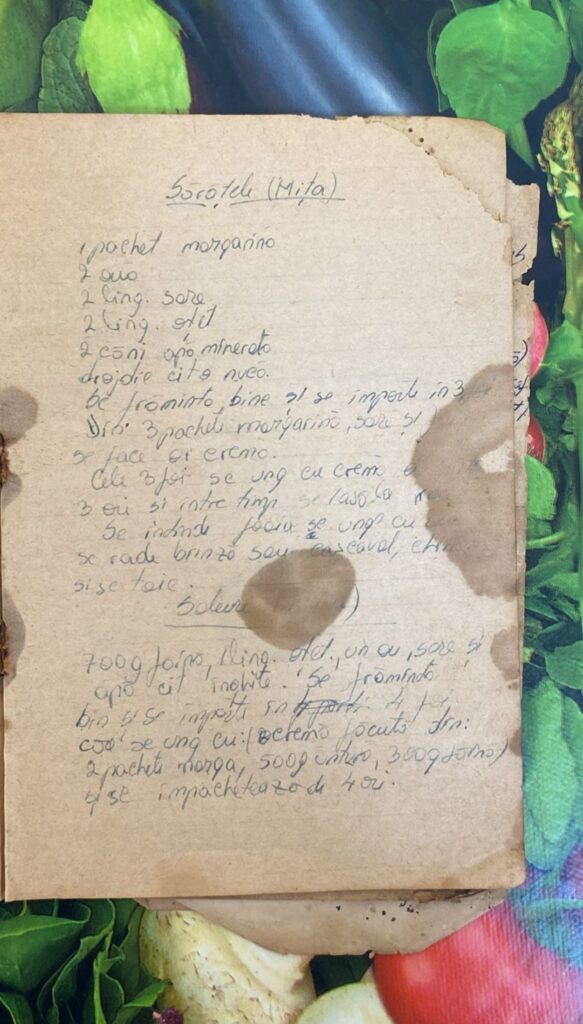 Sărățele (Mița)
1 pachet margarină
2 ouă
2 ling. sare
2 ling. oțet
2 căni apă minerală
drojdie cît o nucă.
Se frămîntă bine și se împarte în 3
Din 3 pachete margarină, sare și
se face o cremă.
Cele 3 foi se ung cu cremă
3 ori si intre timp se lasă la
Se intinde foaia se unge cu
se rade brînză sau cașcaval,
si se taie.
700g faină, 1 ling. oțet, un ou, sare si
apă cît înghite. Se frămîntă
bin si se imparte in 4 foi
care se ung cu: (o cremă făcută din:
2 pachete marga, 500g untură, 300g faină)
și se împachetează de 4 ori.